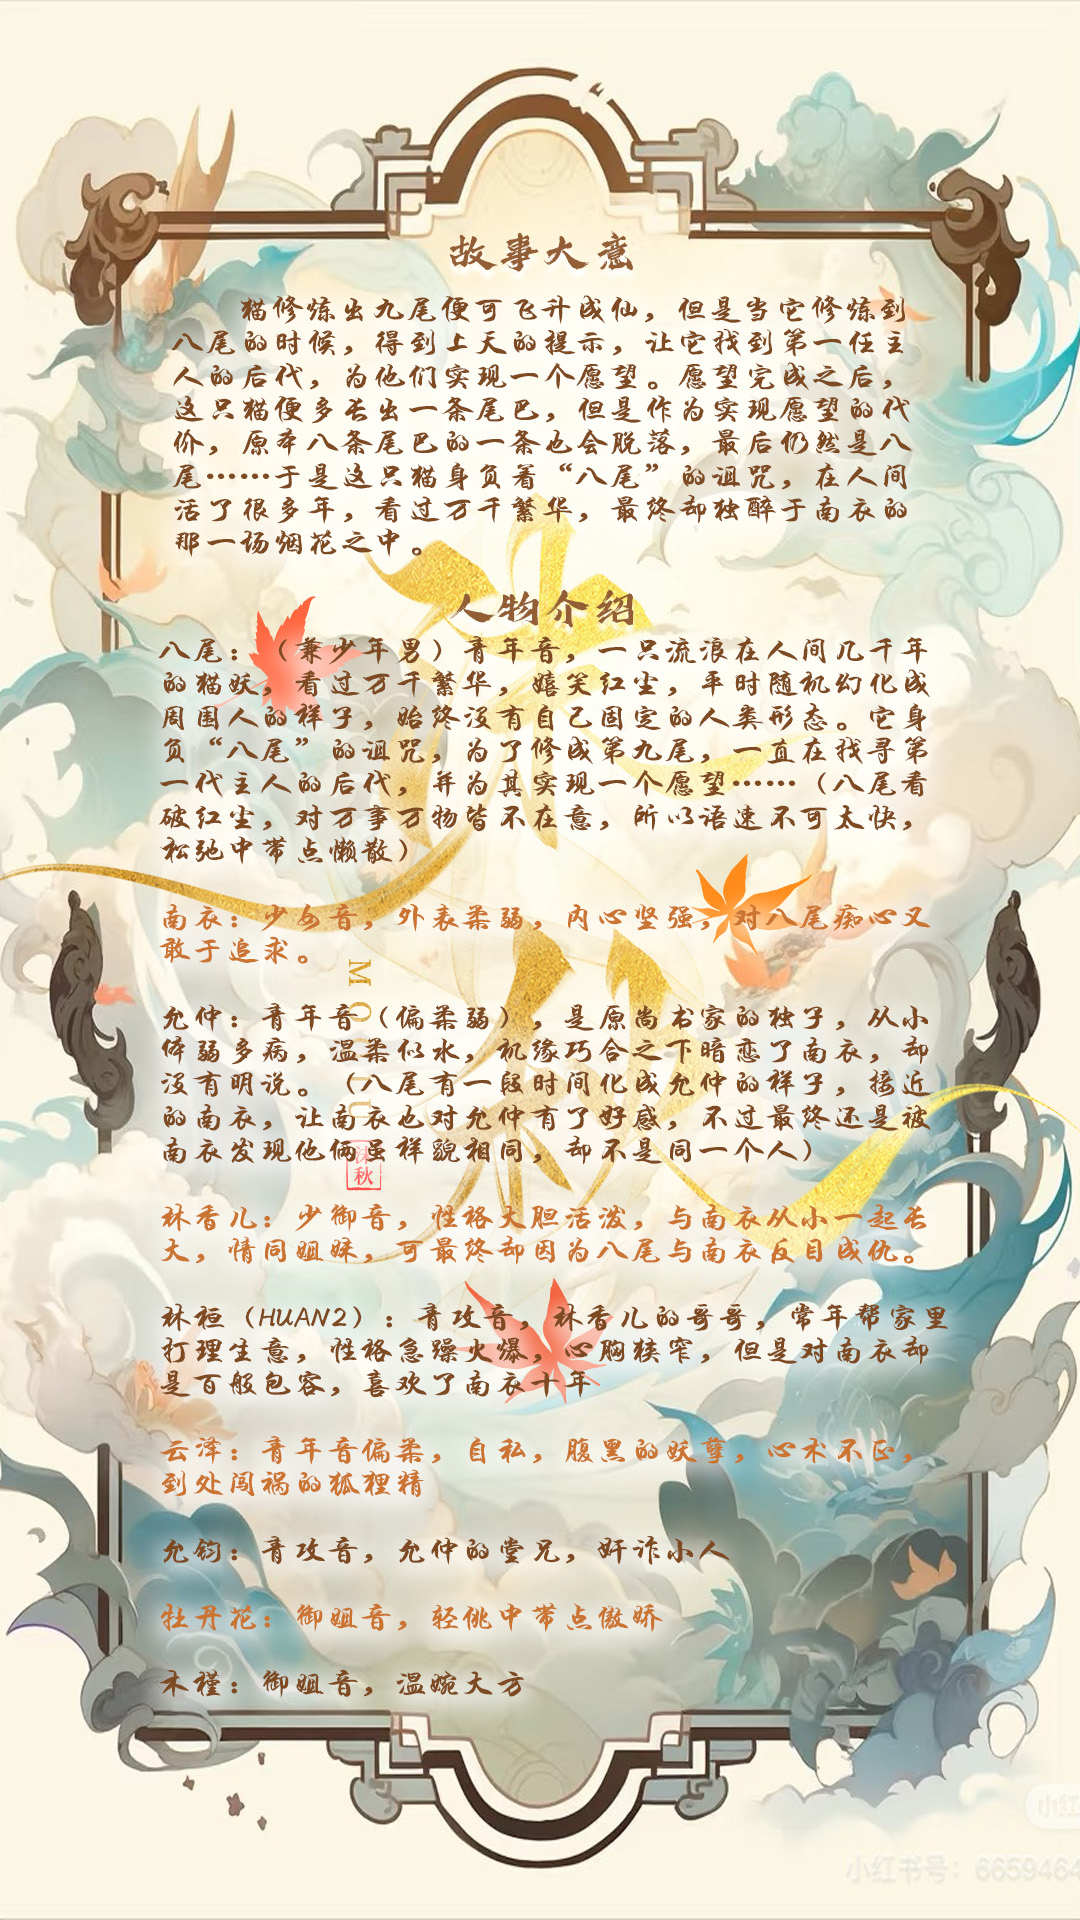 故事大意
猫修炼出九尾便可飞升成仙，但是当它修炼到
八尾的时候，得到上天的提示，让它找到第一任主
人的后代，为他们实现一个愿望。愿望完成之后，
这只猫便多长出一条尾巴，但是作为实现愿望的代
价，原本八条尾巴的一条也会脱落，最后仍然是八
尾……于是这只猫身负着“八尾”的诅咒，在人间
活了很多年，看过万千繁华，最终却独醉于南衣的
那一场烟花之中。
人物介绍
八尾：（兼少年男）青年音，一只流浪在人间几千年
的猫妖，看过万千繁华，嬉笑红尘，平时随机幻化成
周围人的样子，始终没有自己固定的人类形态。它身
负“八尾”的诅咒，为了修成第九尾，一直在找寻第
一代主人的后代，并为其实现一个愿望……（八尾看
破红尘，对万事万物皆不在意，所以语速不可太快，
松弛中带点懒散）
南衣：少女音，外表柔弱，内心坚强，对八尾痴心又
敢于追求。
允仲：青年音（偏柔弱），是原尚书家的独子，从小
体弱多病，温柔似水，机缘巧合之下暗恋了南衣，却
没有明说。（八尾有一段时间化成允仲的样子，接近
的南衣，让南衣也对允仲有了好感，不过最终还是被
南衣发现他俩虽样貌相同，却不是同一个人）
林香儿：少御音，性格大胆活泼，与南衣从小一起长
大，情同姐妹，可最终却因为八尾与南衣反目成仇。
林桓（HUAN2）：青攻音，林香儿的哥哥，常年帮家里
打理生意，性格急躁火爆，心胸狭窄，但是对南衣却
是百般包容，喜欢了南衣十年
云泽：青年音偏柔，自私，腹黑的妖孽，心术不正，
到处闯祸的狐狸精
允钧：青攻音，允仲的堂兄，奸诈小人
牡丹花：御姐音，轻佻中带点傲娇
木槿：御姐音，温婉大方
沐秋
小红书号：6659464